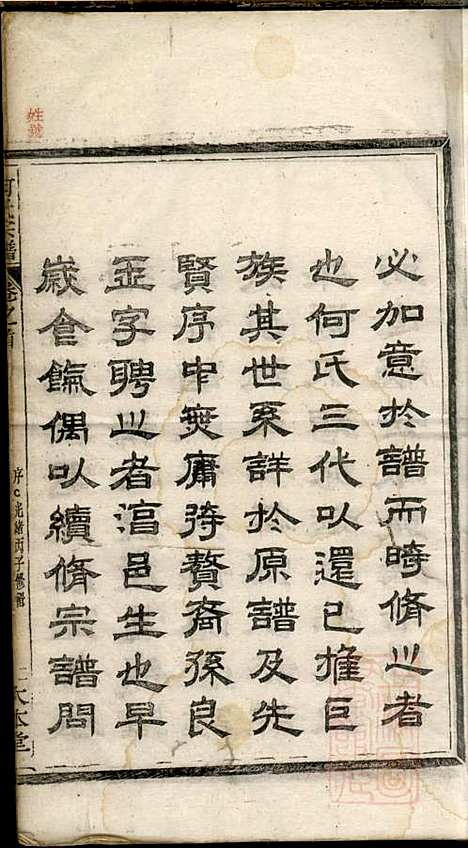 必加意於譜而時脩之者
也何氏三代以還已推巨
族其世系詳於原譜及先
賢序中無庸待贅裔孫良
玉字聘之者涪邑生也早
歲食餼偶以續脩宗譜問
何氏宗譜 卷之首 序 光緒丙子修譜 大本堂
姓氏